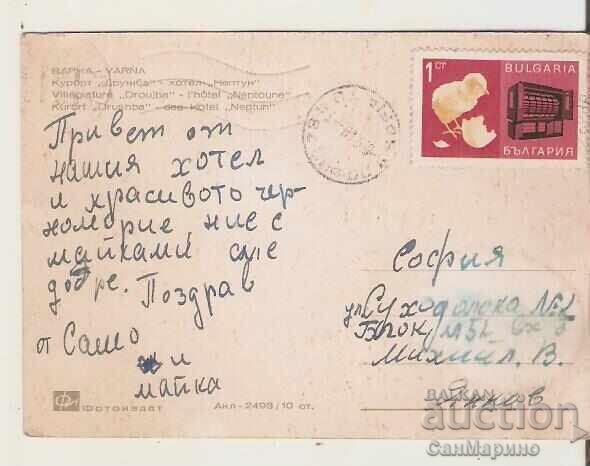 ВАРНА - VARNA
Курорт „Дружба" - хотел „Нептун"
Villegiature „Droujba" - l'hôtel „Neptoune"
Kurort „Drushba" - das Hotel „Neptun"
1 СТ
BULGARIA
БЪЛГАРИЯ
Привет от
нашия хотел
и красивото чер-
номорие, ние с
майками сме
добре. Поздрав
от Сашо
и
майка
София
ул. Суходолска №
Блок
Михаил. В.
Янков
Фотоиздат
Акл-2493/10 ст.
BALKAN
auction
СанМарино